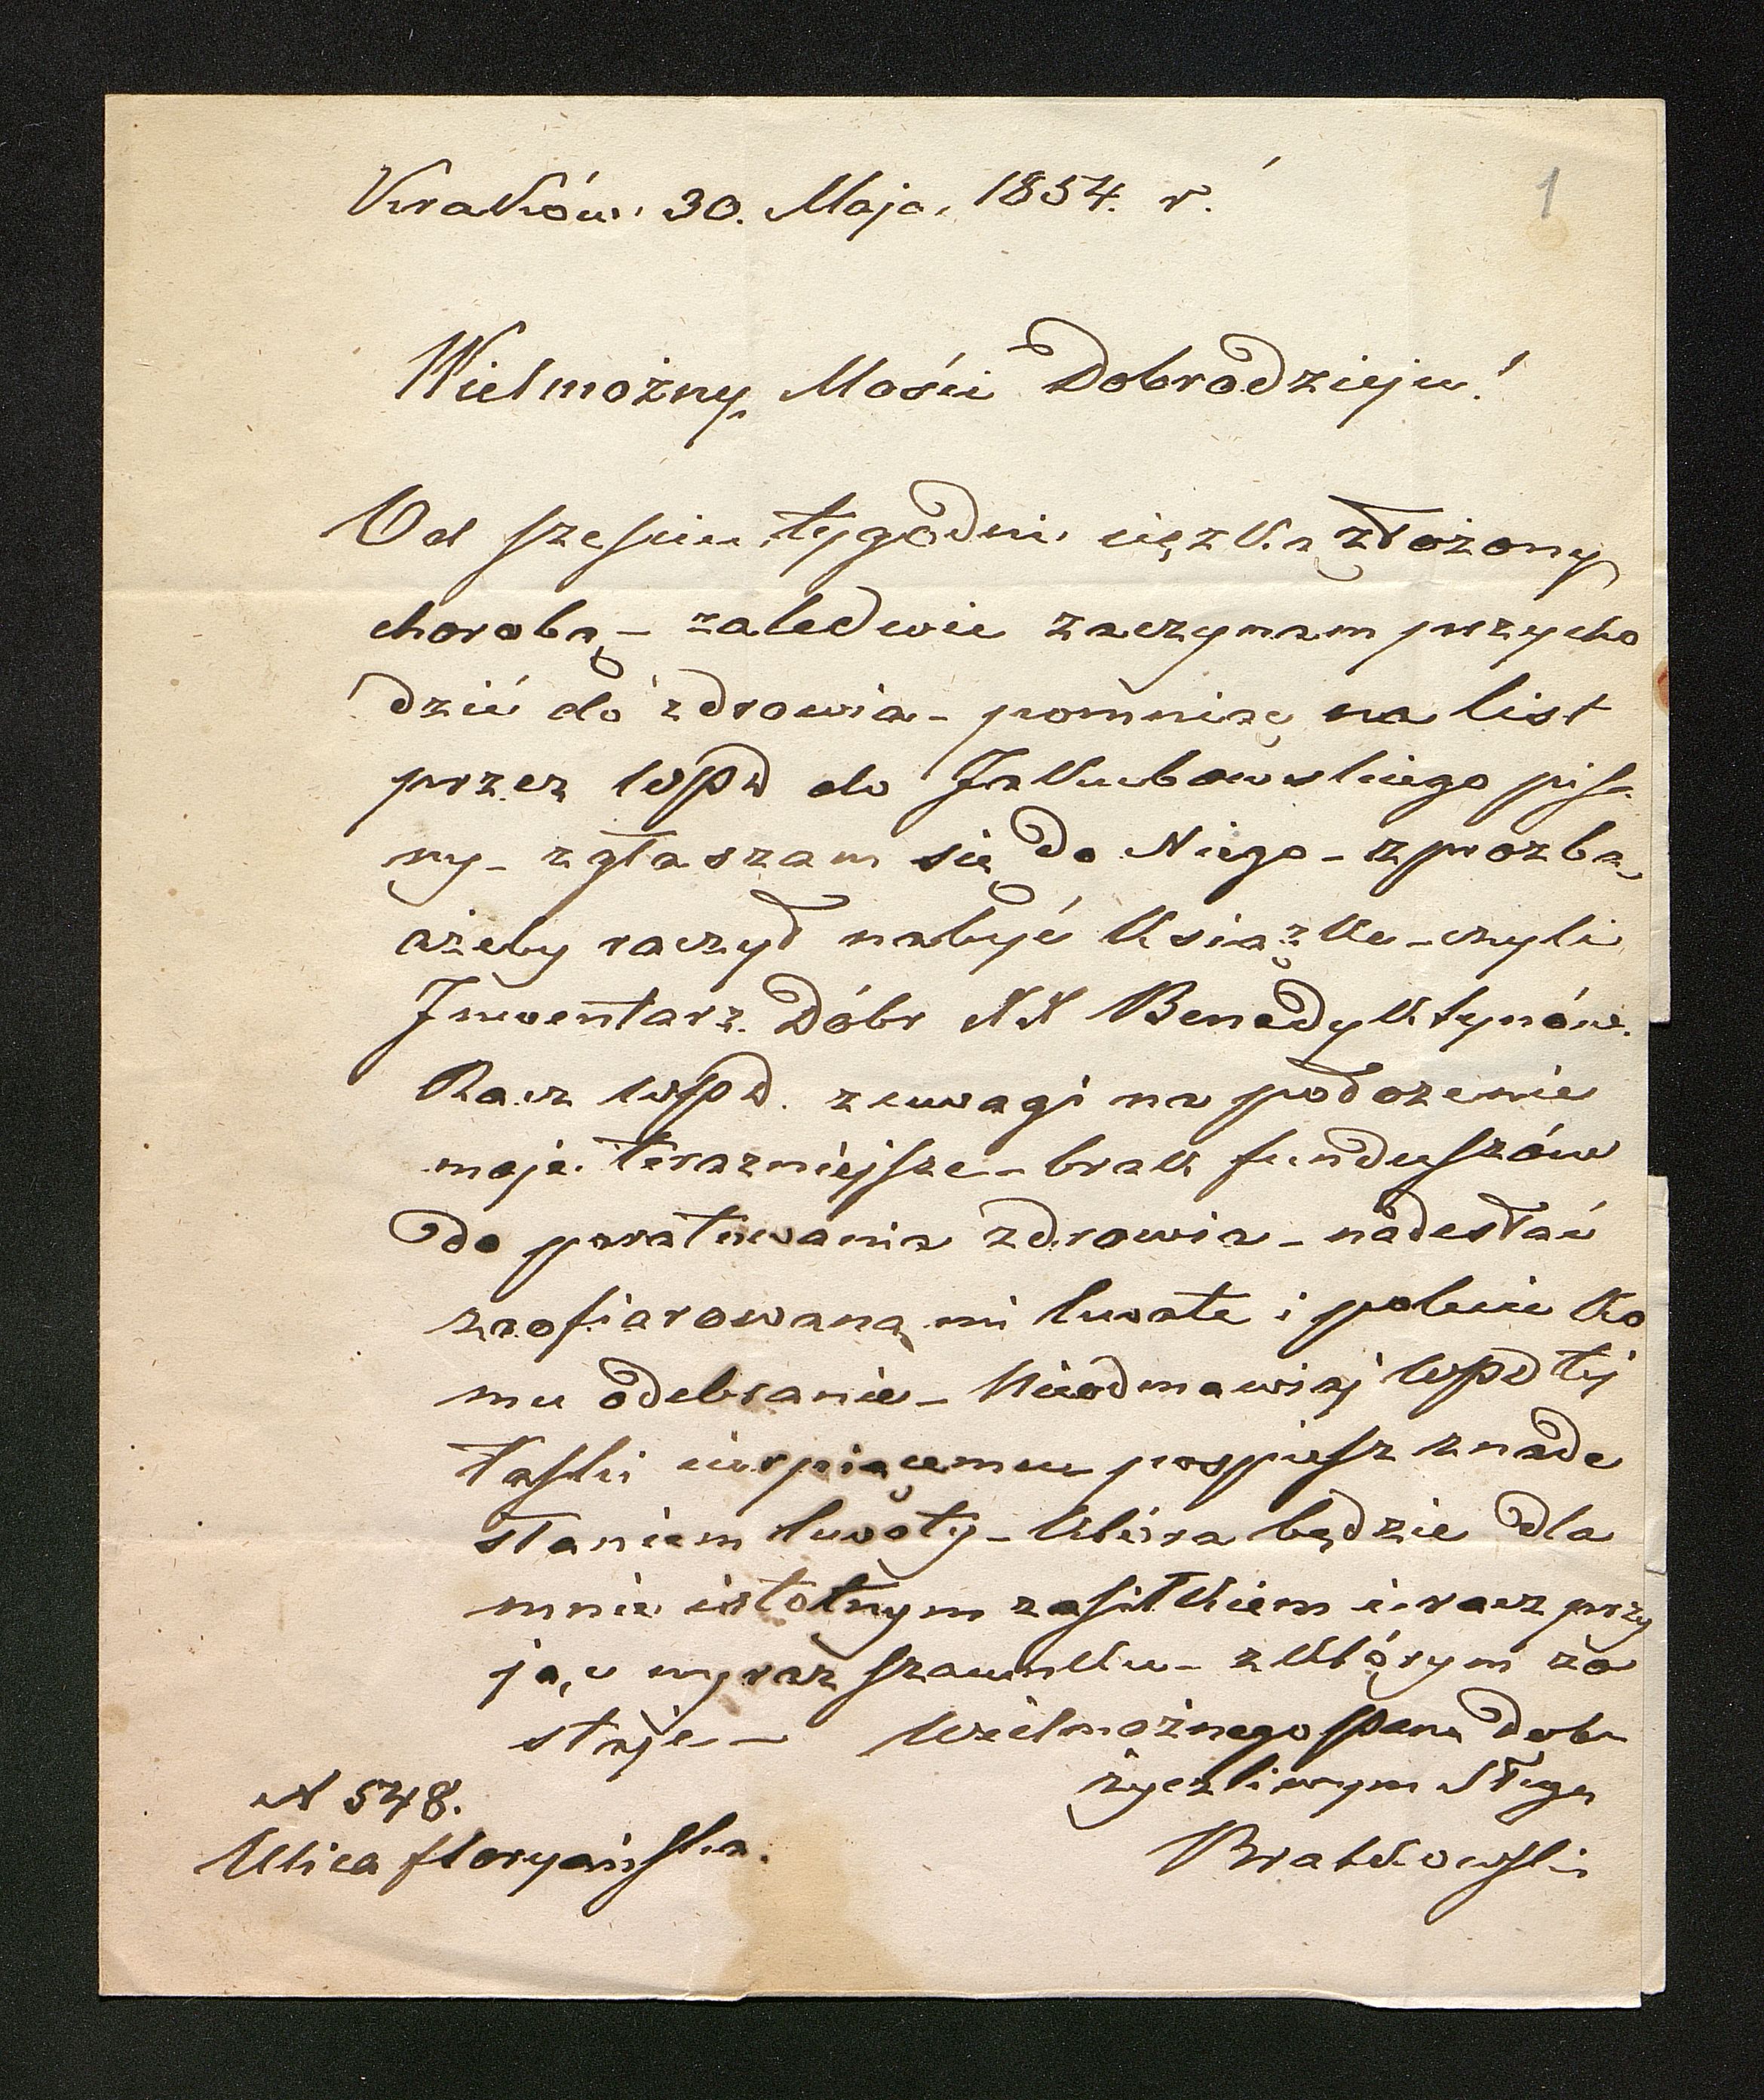 1
Kraków. 30. Maja. 1854. r.
Wielmożny Mości Dobrodzieju!
Od sześciu tygodni ciężką złożony
chorobą – zaledwie zaczynam przycho
dzić do zdrowia – pomnizę na list
przez WPD do Jakubowskiego pisa
ny – zgłaszam się do Niego – z prozbą
ażeby raczył nabyć Książke – czyli
Inwentarz Dóbr XX Benedyktynów.
Racz WPD. z uwagi na położenie
moje terazniejsze – brak funduszów
do poratowania zdrowia – nadesłać
zaofiarowaną mi kwote i polecić ko
mu odebranie – Nieodmawiaj WPD tej
łaski cierpiącemu pospiesz z nade
słaniem kwoty – która będzie dla
mnie istotnym zasiłkiem i racz przy
jąć wyraz szacunku – z którym zo
staje – Wielmożnego Pana Dobr
życzliwym Sługą
N 548.
Ulica floryańska.
Bratkowski